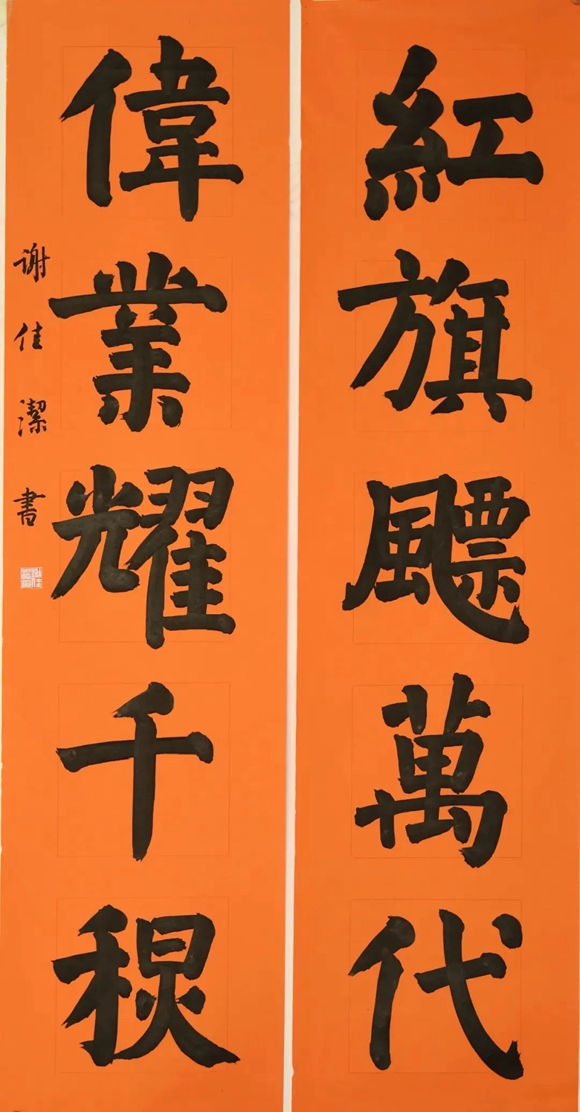 紅旗飃萬代
偉業耀千
谢佳潔書